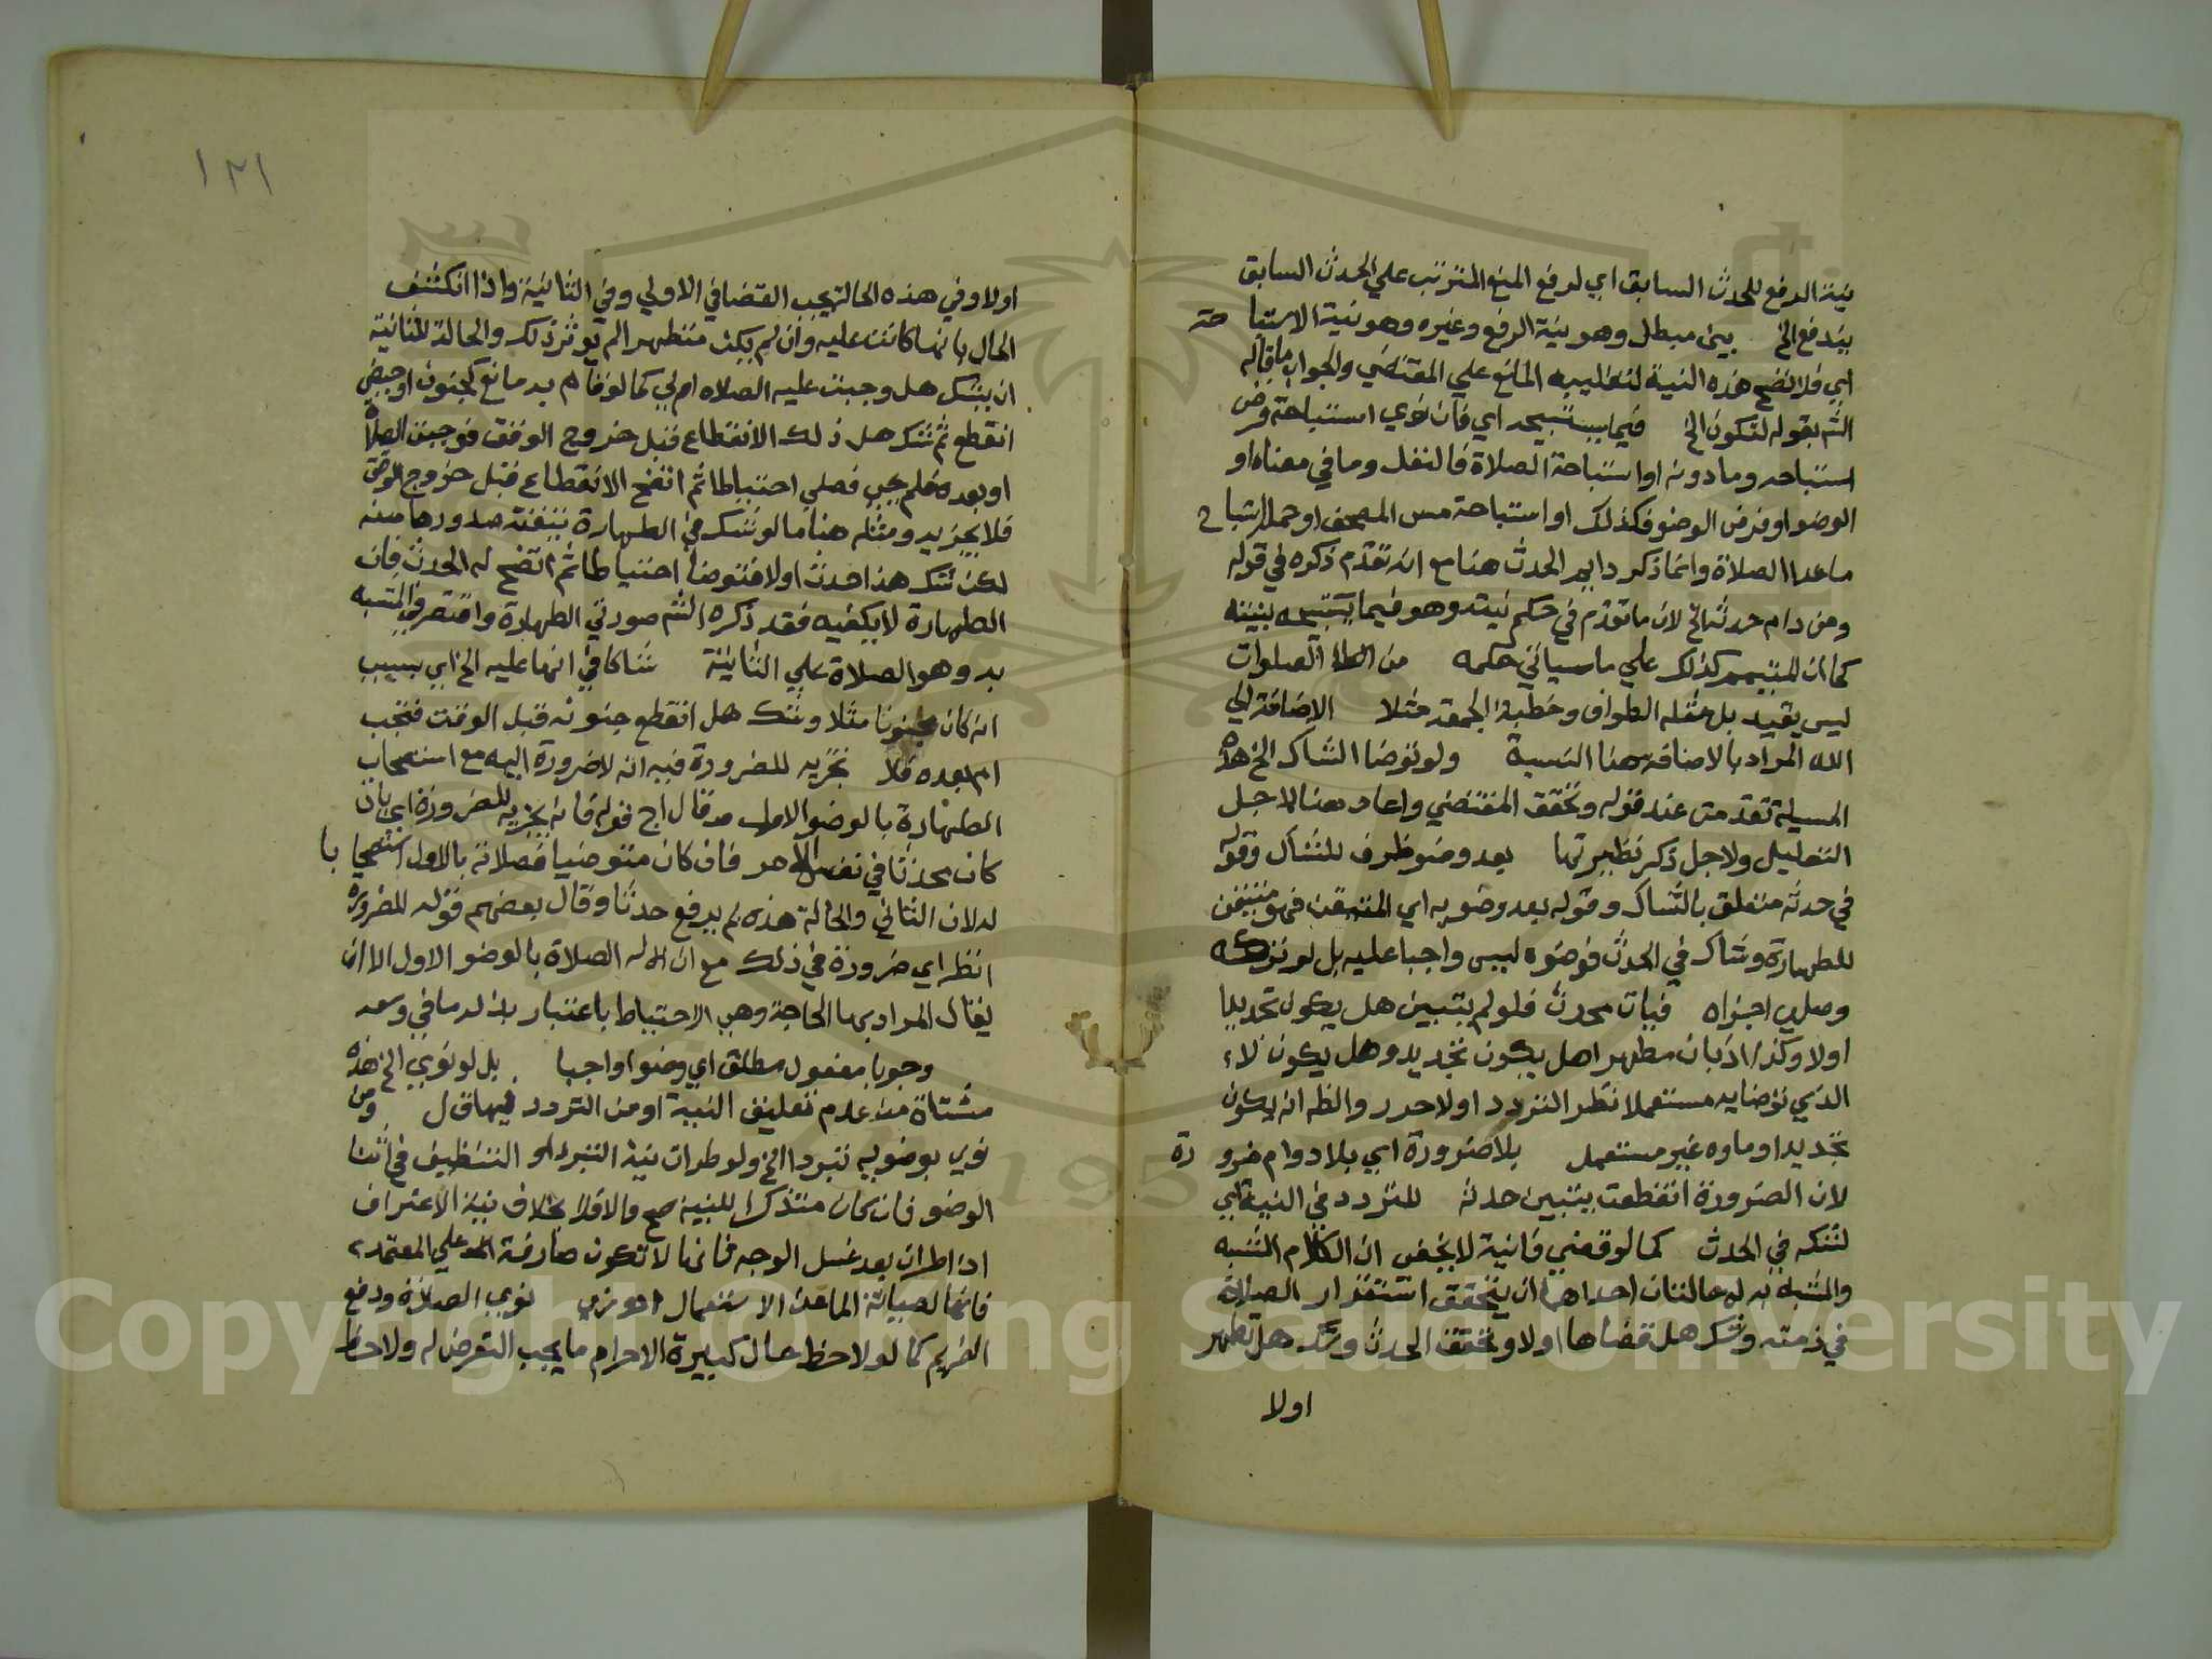 نية الرفع للحدث السابق اي لرفع المنع المترتب علي الحدث السابق
بيندفع الخ بين مبطل وهو نية الرفع وغيره وهو نية الاستباحة
اي فلا تصح هذه النية لتغليب المانع علي المقتضي والجواب ما قاله
الشم بقوله لتكون الخ فيما يستبيحه اي فان نوي استباحة فرض
استباحه وما دونه او استباحة الصلاة فالنفل وما في معناه او
الوضو او فرض الوضو فكذلك او استباحة مس المصحف او حمل استباح
ما عدا الصلاة وانما ذكر دايم الحدث هنا مع انه تقدم ذكره في قوله
ومن دام حدثه الخ لان ما تقدم في حكم نيته وهو فيما يستبيحه بنيته
كما ان للمتيمم كذلك علي ما سياتي حكمه من الصلوات
ليس بقيد بل مثله الطواف وخطبة الجمعة مثلا الاضافة الي
الله المراد بالاضافة هنا النسبة ولو توضا الشاك الخ هذه
المسيلة تقدمت عند قوله وتحقق المقتضي واعاد هنا لاجل
التعليل ولاجل ذكر نظيرتها بعد وضو ظرف للشاك وقوله
في حدثه متعلق بالشاك وقوله بعد وضويه اي المتيقن فهو متيقن
للطهارة وشاك في الحدث فوضوه ليس واجبا عليه بل لو تركه
وصلي اجزاه فبان محدث فلو لم يتبين هل يكون تجديدا
اولا وكذا اذا بان مطهرا هل يكون تجديد وهل يكون الماء
الذي توضا به مستعملا نظر التردد اولا حرر والظ انه يكون
تجديدا وماوه غير مستعمل بلا ضرورة اي بلا دوام ضرورة
لان الضرورة انقطعت بتبين حدثه للتردد في النية اي
لشكه في الحدث كما لو قضي فانية لا يخفي ان الكلام المشبه
والمشبه به له حالتان احداهما ان يتحقق استقرار الصلاة
في ذمته وشك هل قضاها اولا وتحقق الحدث وشك هل تطهر
اولا
١٢١
اولا وفي هذه الحالة يجب القضا في الاولي وفي الثانية واذا انكشف
الحال بانها كانت عليه وان لم يكن متطهرا لم يوثر ذلك والحالة الثانية
ان يشك هل وجبت عليه الصلاه ام لا كما لو قام به مانع كجنون او حيض
انقطع ثم شك هل ذلك الانقطاع قبل خروج الوقت فوجبت الصلاة
او بعده فلم يجب فصلي احتياطا ثم اتضح الانقطاع قبل خروج الوقت
فلا يجزيه ومثله هنا ما لو شك في الطهارة بتيقنه صدورها منه
لكن شك هذا احدث اولا فتوضا احتياطا ثم اتضح له الحدث فان
الطهارة لا تكفيه فقد ذكره الشم صورتي الطهارة واقتصر في المشبه
به وهو الصلاة علي الثانية شاكا في انها عليه الخ اي بسبب
انه كان مجنونا مثلا وشك هل انقطع جنونه قبل الوقت فتجب
ام بعده فلا تجزيه للضرورة فيه انه لا ضرورة اليه مع استصحاب
الطهارة بالوضو الاول وقال اج قوله فانه يجزيه للضرورة اي بان
كان محدثا في نفس الامر فان كان متوضيا فصلاته بالاول استصحابا
له لان الثاني والحالة هذه لم يرفع حدثا وقال بعضهم قوله للضرورة
انظر اي ضرورة في ذلك مع ان له الصلاة بالوضو الاول الا ان
يقال المراد بها الحاجة وهي الاحتياط باعتبار بذله ما في وسعه
وجوبا مفعول مطلق اي وضوا واجبا بل لو نوي الخ هذه
مشتاة من عدم تعليق النية او من التردد فيها ق ل ومن
نوي بوضويه تبردا الخ ولو طرات نية التبرد او التنظيف في اثنا
الوضو فان كان متذكرا للنية صح والا فلا بخلاف نية الاغتراف
اذا طرات بعد غسل الوجه فانها لا تكون صارفة علي المعتمد
فانها لصيانة الما عن الاستعمال نوي الصلاة ودفع
الغريم كما لو لاحظ حال تكبيرة الاحرام ما يجب التعرض له ولاحظ
Copyright © King Saud University
1957